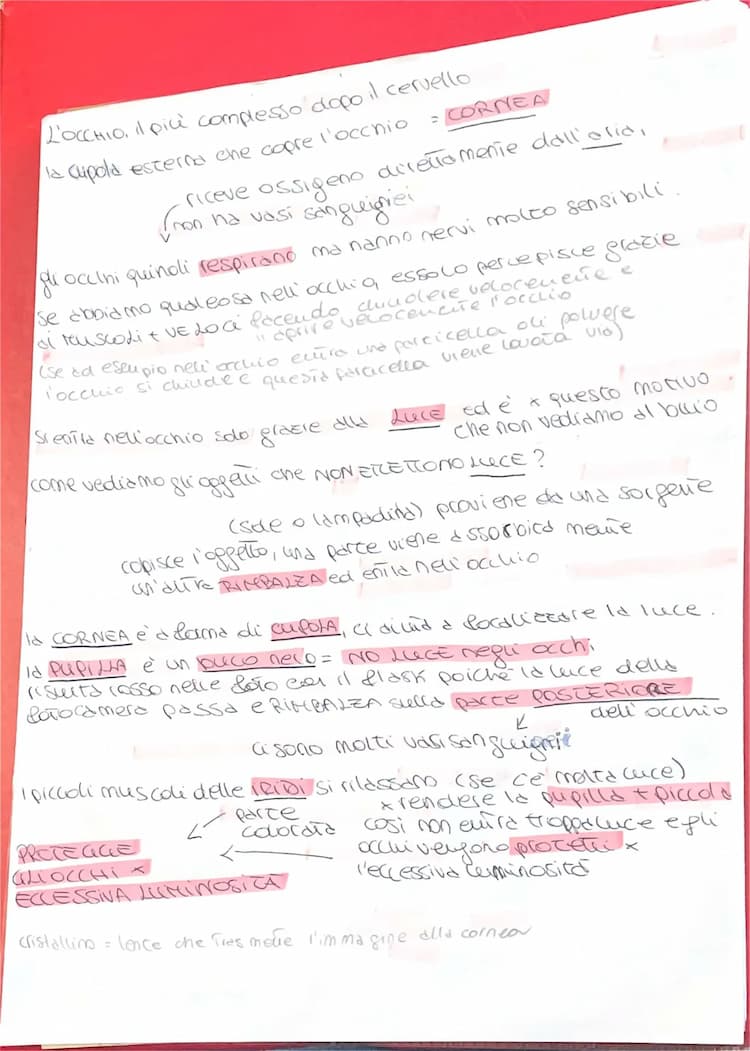 L'OCCHIO, il più complesso dopo il cervello
la cupola esterna che copre l'occhio = CORNEA
riceve ossigeno direttamente dall'aria,
non ha vasi sanguigniei
gli occhi quindi respirano ma hanno nervi molto sensibili.
se abbiamo qualcosa nell'occhio, esso lo percepisce grazie
ai MUSCOLI + VELOCI facendo chiudere velocemente e
aprire velocemente l'occhio
(se ad esempio nell'occhio entra una particella di polvere
l'occhio si chiude e questa particella viene lavata via)
Si entra nell'occhio solo grazie alla LUCE ed è x questo motivo
che non vediamo al buio
come vediamo gli oggetti che NON EMETTONO LUCE?
(sole o lampadina) proviene da una sorgente
colpisce l'oggetto, una parte viene assorbita mentre
un'altra RIMBALZA ed entra nell'occhio
la CORNEA è a forma di CUPOLA, ci aiuta a focalizzare la luce.
la PUPILLA è un buco nero = NO LUCE negli occhi
risulta rosso nelle foto con il flash poiché la luce della
fotocamera passa e RIMBALZA sulla parte POSTERIORE
dell'occhio
ci sono molti vasi sanguignii
I piccoli muscoli delle IRIDI si rilassano (se c'è molta luce)
parte
colorata
x rendere la pupilla + piccola
così non entra troppa luce e gli
occhi vengono protetti x
l'eccessiva luminosità
PROTEGGE
GLI OCCHI x
ECCESSIVA LUMINOSITÀ
cristallino = lente che trasmette l'immagine alla cornea